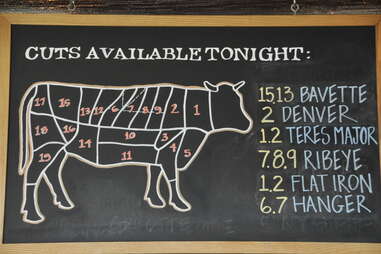 CUTS AVAILABLE TONIGHT:
15,13 BAVETTE
2 DENVER
1.2 TERES MAJOR
7.8.9 RIBEYE
1.2 FLAT IRON
6.7 HANGER
17 15 13 12 6 7 8 9 2 1
18 16 14 10 3 4
19 11 5